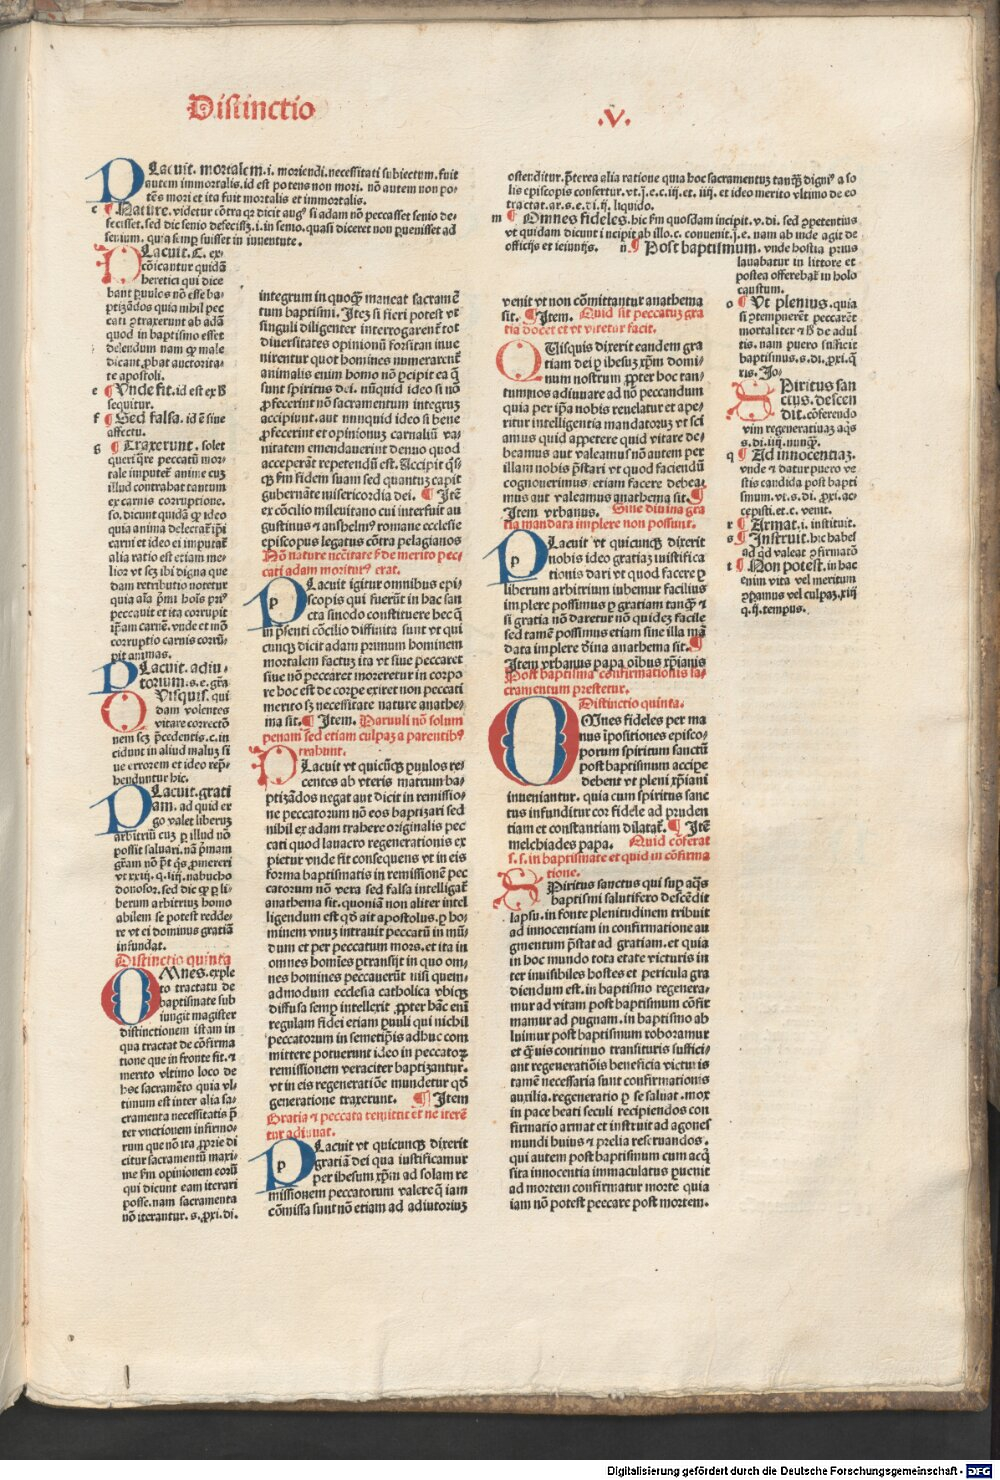 Distinctio
.V.
PLacuit. mortalem.i. moriendi.necessitati subiectum.fuit
autem immortalis.id est potens non mori. nõ autem non po⸗
tẽs mori et ita fuit mortalis et immortalis.
e ¶ Nature.videtur cõtra qz dicit augꝰ si adam nõ peccasset senio de⸗
fecisset.sed dic senio defecissz.i.in senio.quasi diceret non ꝑuenisset ad
senium. quia semꝑ fuisset in iuuentute.
PLacuit.C. ex⸗
cõicantur quidã
heretici qui dice
bant ꝑuulos nõ esse ba⸗
ptizãdos quia nihil pec
cati ꝯtraxerunt ab adã
quod in baptismo esset
delendum nam ꝙ male
dicant ꝓbat auctorita⸗
te apostoli.
e ¶ Vnde fit.id est ex ꝗ
sequitur.
f ¶ Sed falsa. id ẽ siue
affectu.
g ¶ Traxerunt. solet
queri ꝗre peccatũ mor⸗
tale imputet᷑ anime cuz
illud contrabat tantum
ex carnis corruptione.
so.dicunt quidã ꝙ ideo
quia anima delectat᷑ ip̃i
carni et ideo ei imputat᷑
alia ratio est etiam me⸗
lior vt scz ibi digna que
dam retributio notetur
quia aĩa p̃mi hoĩs priꝰ
peccauit et ita corrupit
ip̃am carnẽ.vnde et mõ
corruptio carnis corrũ⸗
pit animas.
PLacuit. adiu⸗
torium.s.e.gr̃a
QVisquis. qui
dam volentes
vitare correctõ
nem scz p̃cedentis.c.in
cidunt in aliud maluz si
ue errorem et ideo rep̃⸗
henduntur hic.
PLacuit.grati
am. ad quid er
go valet liberuz
arbitriũ cuz ꝑ illud nõ
possit saluari.nã p̃mam
gr̃am nõ p̃t qs ꝓmereri
vt xxiij.q.iiij.nabucho
donosor.sed dic ꝙ ꝑ li⸗
berum arbitriuz homo
abilem se potest redde⸗
re vt ei dominus gratiã
infundat.
Distinctio quinta
OMnes.exple
to tractatu de
baptismate sub
iungit magister
distinctionem istam in
qua tractat de cõfirma
tione que in fronte fit.⁊
merito vltimo loco de
hoc sacramẽto quia vl⸗
timum est inter alia sa⸗
cramenta necessitatis p̃
ter vnctionem infirmo⸗
rum que nõ ita ꝓprie di
citur sacramentũ maxi⸗
me fm̃ opinionem eorũ
qui dicunt eam iterari
posse.nam sacramenta
nõ iterantur.s.ꝓxi.di.
integrum in quoqꝫ maneat sacramẽ
tum baptismi. Itez si fieri potest vt
singuli diligenter interrogarent᷑ tot
diuersitates opinionũ forsitan inue
nirentur quot homines numerarent᷑
animalis enim homo nõ ꝑcipit ea ꝗ̃
sunt spiritus dei. nũquid ideo si nõ
ꝓfecerint nõ sacramentum integruz
accipiunt.aut nunquid ideo si bene
ꝓfecerint et opinionuz carnaliũ va⸗
nitatem emendauerint denuo quod
acceperãt repetendũ est.Accipit q̃s⸗
qꝫ fm̃ fidem suam sed quantuz capit
gubernãte misericordia dei. ¶ Itẽ
ex cõcilio mileuitano cui interfuit au
gustinus ⁊ anshelmꝰ romane ecclesie
episcopus legatus cõtra pelagianos
Nõ nature necc̃itate s̃ de merito pec⸗
cati adam moriturꝰ erat.
PLacuit igitur omnibus epi⸗
scopis qui fuerũt in hac san
cta sinodo constituere hec ꝗ̃
in p̃senti cõcilio diffinita sunt vt qui
cunqꝫ dicit adam primum hominem
mortalem factuz ita vt siue peccaret
siue nõ peccaret moreretur in corpo
re hoc est de corpe exiret non peccati
merito sz necessitate nature anathe⸗
ma sit.¶ Item. Paruuli nõ solum
penam sed etiam culpaz a parentibꝰ
trahunt.
PLacuit vt quicũqꝫ ꝑuulos re⸗
centes ab vteris matrum ba⸗
ptizãdos negat aut dicit in remissio⸗
ne peccatorum nõ eos baptizari sed
nihil ex adam trahere originalis pec
cati quod lauacro regenerationis ex
pietur vnde fit consequens vt in eis
forma baptismatis in remissionẽ pec
catorum nõ vera sed falsa intelligat᷑
anathema sit.quoniã non aliter intel
ligendum est qd̃ ait apostolus.ꝑ ho⸗
minem vnuz intrauit peccatũ in mũ⸗
dum et per peccatum mors.et ita in
omnes homiẽs ꝑtransijt in quo om⸗
nes homines peccauerũt nisi quem⸗
admodum ecclesia catholica vbiqꝫ
diffusa semꝑ intellexit ꝓpter hãc eni
regulam fidei etiam ꝑuuli qui nichil
peccatorum in semetip̃is adhuc com
mittere potuerunt ideo in peccatoꝝ
remissionem veraciter baptizantur.
vt in eis regeneratiõe mundetur qd̃
generatione traxerunt. ¶ Item
Gratia ⁊ peccata remittit et ne iterẽ
tur adiuuat.
PLacuit vt quicunqꝫ dixerit
gratiã dei qua iustificamur
per ihesum xp̃m ad solam re
missionem peccatorum valere ꝗ̃ iam
cõmissa sunt nõ etiam ad adiutoriuz
ostenditur.p̃terea alia ratione quia hoc sacramentuz tanqꝫ digniꝰ a so
lis episcopis confertur.vt.j.e.c.iij.et. iiij. et ideo merito vltimo de eo
tractat.ar.s.e.di.ij. liquido.
m ¶ Omnes fideles.hic fm̃ quosdam incipit.v.di. sed ꝓpetentius
vt quidam dicunt incipit ab illo.c. conuenit.j.e. nam ab inde agit de
officijs et ieiunijs. n ¶ Post baptismum. vnde hostia prius
lauabatur in littore et
postea offerebat᷑ in holo
caustum.
o ¶ Vt plenius.quia
si ꝯtemnerẽt peccarẽt
mortaliter ⁊ ꝗ de adul
tis.nam puero sufficit
baptismus.s.di.ꝓxi.ꝗ̃
ris.Jo.
SPiritus san
ctus.descen
dit. cõferendo
vim regeneratiuaz aqs
s.di.iiij.nunqꝫ.
q ¶ Ad innocentiaz.
vnde ⁊ datur puero ve
stis candida post bapti
smum.vt.s.di. ꝓxi.ac⸗
cepisti.et.c. venit.
r ¶ Armat.i. instituit.
s ¶ Instruit.hic habes
ad qd̃ valeat ꝯfirmatõ
t ¶ Non potest.in hac
enim vita vel meritum
ꝯtrahamus vel culpaz.xiij
q.ij.tempus.
uenit vt non cõmittantur anathema
sit. ¶ Item. Quid sit peccatuz gra
tia docet et vt vitetur facit.
QVisquis dixerit eandem gra
tiam dei ꝑ ihesuz xp̃m domi⸗
num nostrum ꝓpter hoc tan⸗
tummos adiuuare ad nõ peccandum
quia per ip̃a nobis reuelatur et ape⸗
ritur intelligentia mandatoruz vt sci
amus quid appetere quid vitare de⸗
beamus aut valeamus nõ autem per
illam nobis p̃stari vt quod faciendũ
cognouerimus etiam facere debea⸗
mus aut valeamus anathema sit.¶
Item vrbanus. Sine diuina gra
tia mandata implere non possunt.
PLacuit vt quicunqꝫ dixerit
nobis ideo gratiaz iustifica
tionis dari vt quod facere ꝑ
liberum arbitrium iubemur facilius
implere possimus ꝑ gratiam tanqꝫ ⁊
si gratia nõ daretur nõ quidez facile
sed tamẽ possimus etiam sine illa mã
data implere diuina anathema sit.¶
Item vrbanus papa oĩbus xp̃ianis
Post baptismã confirmationis sa⸗
cramentum prestetur.
Distinctio quinta.
OMnes fideles per ma
nus ĩpositiones episco⸗
porum spiritum sanctũ
post baptismum accipe
debent vt pleni xp̃iani
inueniantur. quia cum spiritus sanc
tus infunditur cor fidele ad pruden
tiam et constantiam dilatat᷑. ¶ Itẽ
melchiades papa. Quid cõferat
s.s.in baptismate et quid in cõfirma
tione.
SPiritus sanctus qui suꝑ aq̃s
baptismi salutifero descẽdit
lapsu.in fonte plenitudinem tribuit
ad innocentiam in confirmatione au
gmentum p̃stat ad gratiam.et quia
in hoc mundo tota etate victuris in
ter inuisibiles hostes et pericula gra
diendum est.in baptismo regenera⸗
mur ad vitam post baptismum cõfir
mamur ad pugnam.in baptismo ab
luimur post baptismum roboramur
et ꝗ̃uis continuo transituris suffici⸗
ant regenerationis beneficia victuris
tamẽ necessaria sunt confirmationis
auxilia.regeneratio ꝑ se saluat.mox
in pace beati seculi recipiendos con
firmatio armat et instruit ad agones
mundi huius ⁊ prelia reseruandos.
qui autem post baptismum cum acq̃
sita innocentia immaculatus ꝑuenit
ad mortem confirmatur morte quia
iam nõ potest peccare post mortem.
Digitalisierung gefördert durch die Deutsche Forschungsgemeinschaft - DFG